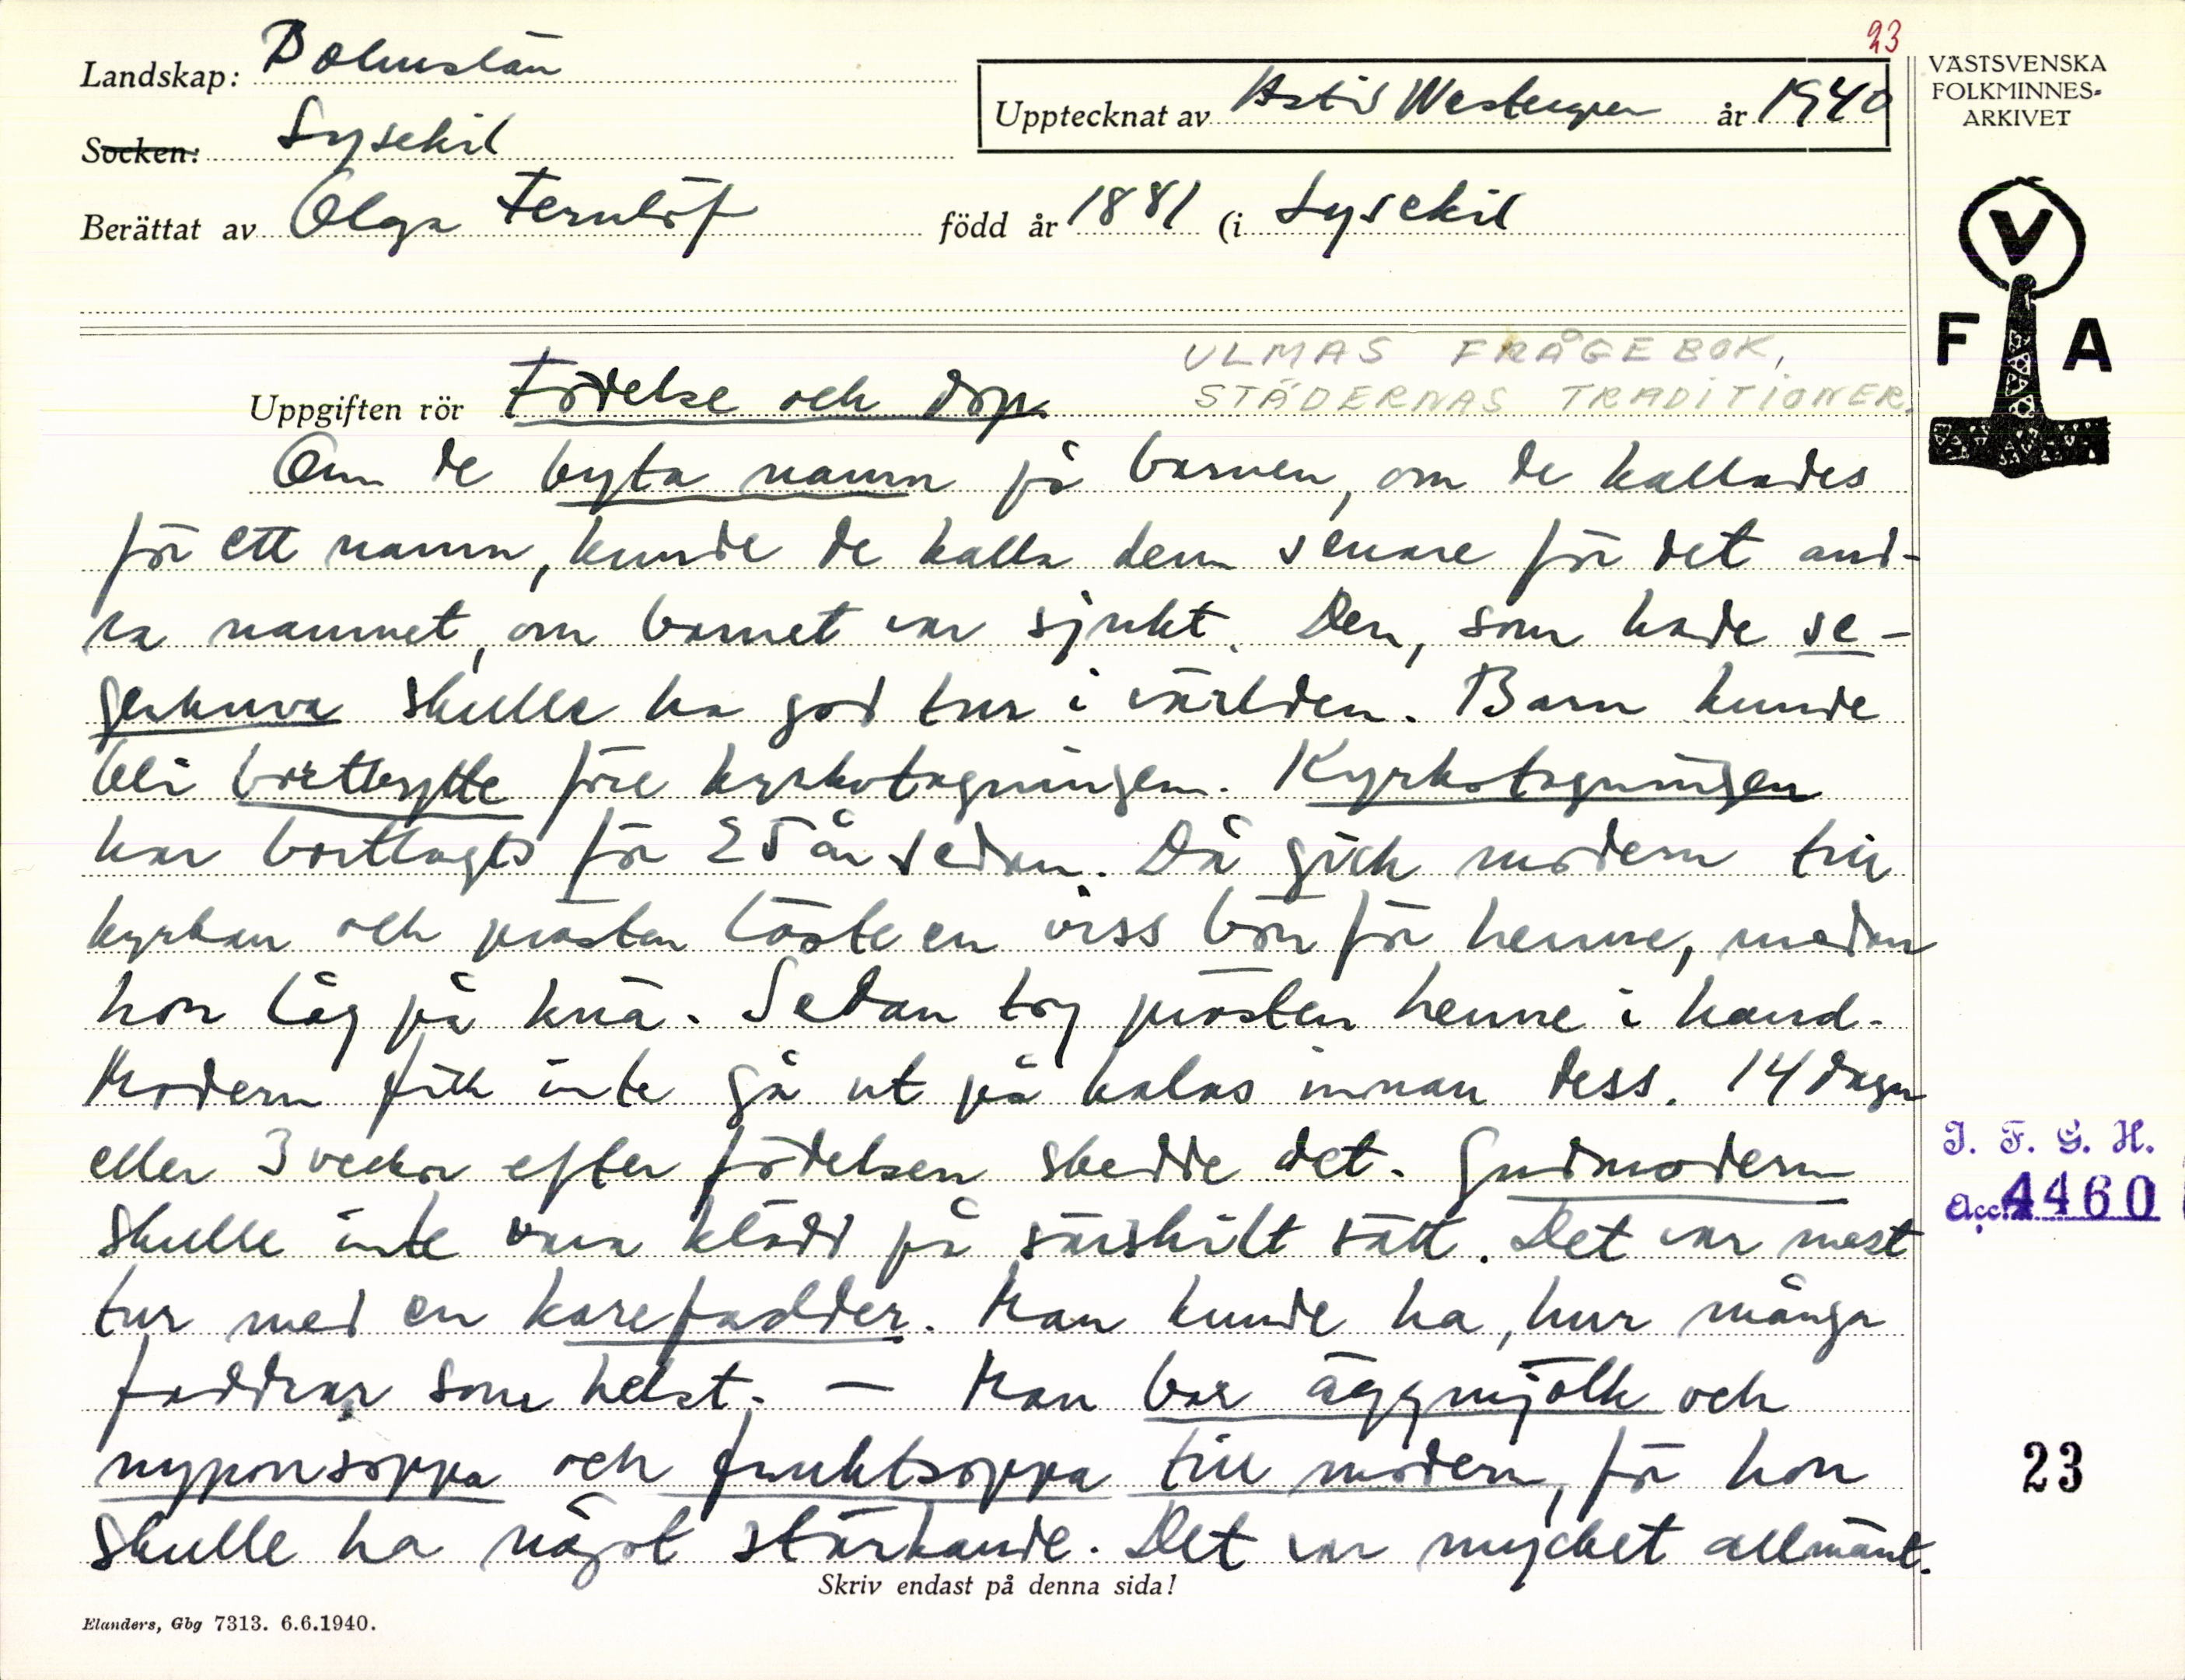 23
Landskap: Bohuslän
Upptecknat av Astrid Westergren år 1940
VÄSTSVENSKA
FOLKMINNES-
ARKIVET
Socken: Lysekil
Berättat av Olga Fernlöf född år 1881 (i Lysekil
V
F A
ULMAS FRÅGEBOK,
STÄDERNAS TRADITIONER.
Uppgiften rör Födelse och dop.
Om de byta namn på barnen, om de kallades
för ett namn, kunde de kalla dem senare för det and-
ra namnet, om barnet var sjukt. Den, som hade se-
gerhuva skulle ha god tur i världen. Barn kunde
bli bortbytte före kyrkotagningen. Kyrkotagningen
har borttagits för 25 år sedan. Då gick modern till
kyrkan och prästen läste en viss bön för henne, medan
hon låg på knä. Sedan tog prästen henne i hand.
Modern fick inte gå ut på kalas innan dess. 14 dagar
eller 3 veckor efter födelsen skedde det. Gudmodern
skulle inte vara klädd på särskilt sätt. Det var mest
tur med en karefadder. Man kunde ha, hur många
faddrar som helst. — Man bar äggmjölk och
nyponsoppa och fruktsoppa till modern, för hon
skulle ha något stärkande. Det var mycket allmänt.
I. F. G. H.
Acc. 4460
23
Skriv endast på denna sida!
Elanders, Gbg 7313. 6.6.1940.